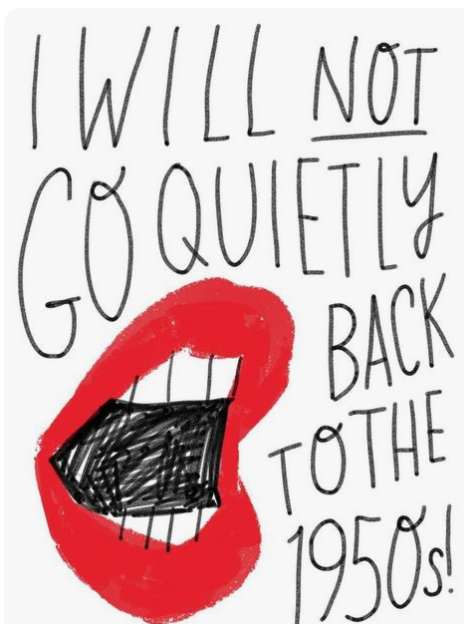 I WILL NOT
GO QUIETLY
BACK
TO THE
1950s!